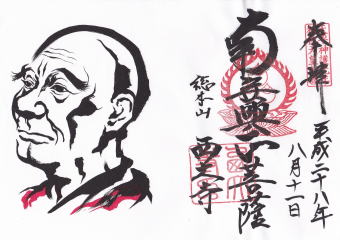 奉拝
平成二十八年
八月十一日
南无興正菩薩
総本山
西大寺